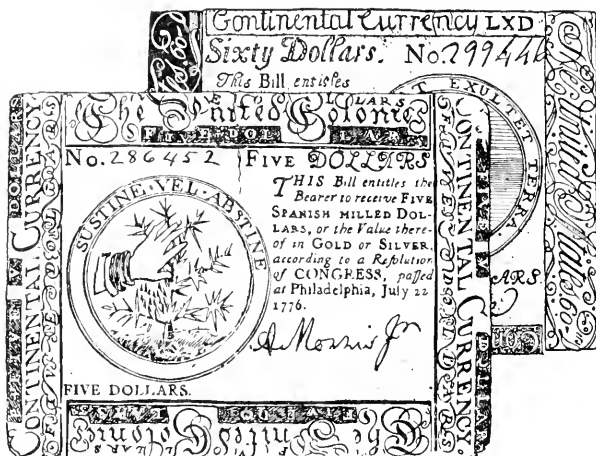 Continental Currency LXD
Sixty Dollars. No. 299446
This Bill entitles
EXULTET TERRA
The United States
The United Colonies
FIVE DOLLARS
CONTINENTAL CURRENCY
FIVE DOLLARS
No. 286452 FIVE DOLLARS
SUSTINE·VEL·ABSTINE
THIS Bill entitles the
Bearer to receive FIVE
SPANISH MILLED DOL-
LARS, or the Value there-
of in GOLD or SILVER,
according to a Resolution
of CONGRESS, passed
at Philadelphia, July 22
1776.
Morris Jr
FIVE DOLLARS.
CONTINENTAL CURRENCY
FIVE DOLLARS
The United Colonies